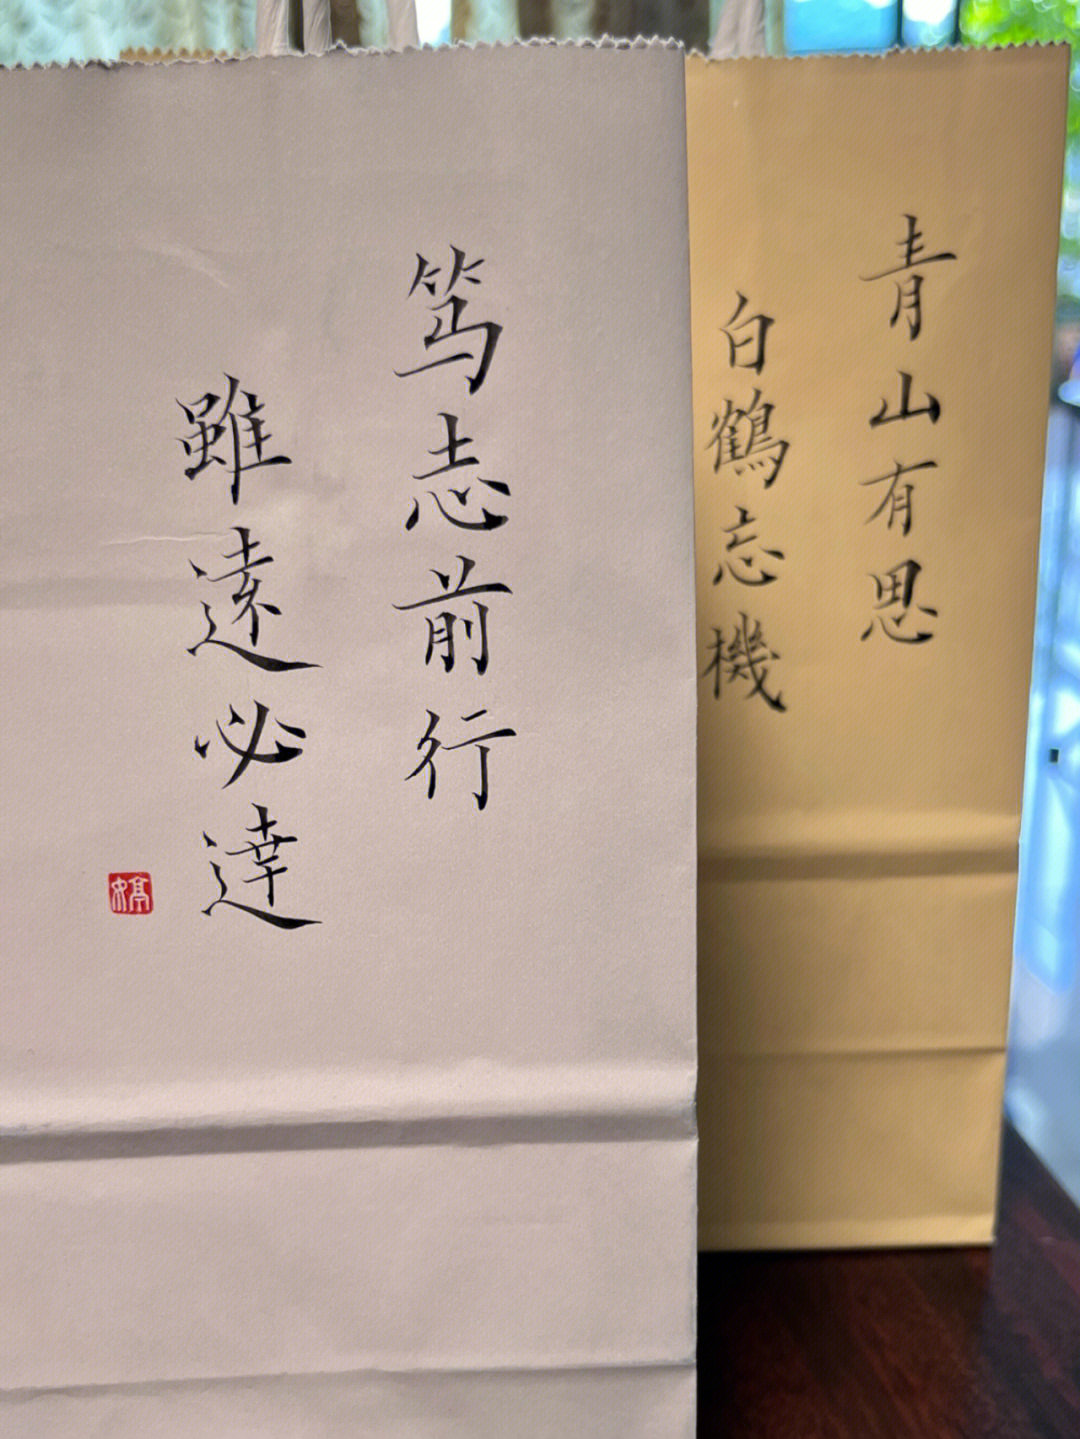 笃志前行
雖遠必達
婷
青山有思
白鶴忘機